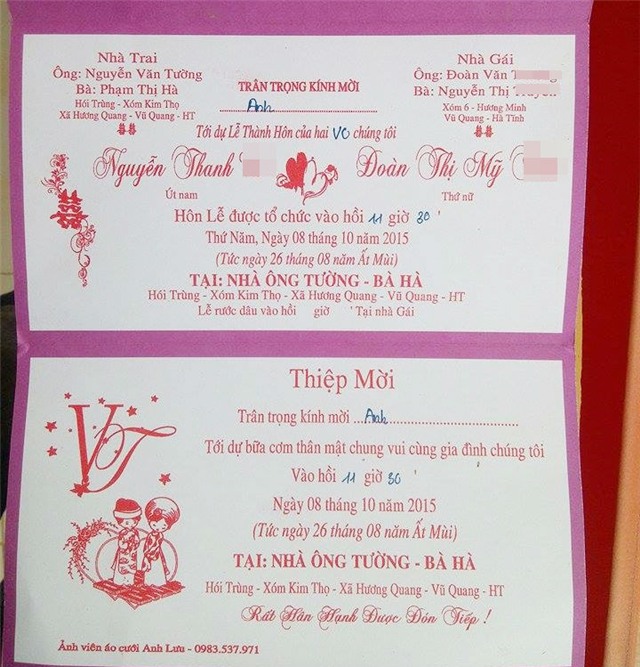 Nhà Trai
Ông: Nguyễn Văn Tường
Bà: Phạm Thị Hà
Hói Trùng - Xóm Kim Thọ
Xã Hương Quang - Vũ Quang - HT
TRÂN TRỌNG KÍNH MỜI
Anh
Nhà Gái
Ông: Đoàn Văn
Bà: Nguyễn Thị
Xóm 6 - Hương Minh
Vũ Quang - Hà Tĩnh
Tới dự Lễ Thành Hôn của hai VC chúng tôi
Nguyễn Thanh
Đoàn Thị Mỹ
Út nam
Thứ nữ
Hôn Lễ được tổ chức vào hồi 11 giờ 30 '
Thứ Năm, Ngày 08 tháng 10 năm 2015
(Tức ngày 26 tháng 08 năm Ất Mùi)
TẠI: NHÀ ÔNG TƯỜNG - BÀ HÀ
Hói Trùng - Xóm Kim Thọ - Xã Hương Quang - Vũ Quang - HT
Lễ rước dâu vào hồi giờ ' Tại nhà Gái
Thiệp Mời
VT
Trân trọng kính mời ...Anh...
Tới dự bữa cơm thân mật chung vui cùng gia đình chúng tôi
Vào hồi 11 giờ 30
Ngày 08 tháng 10 năm 2015
(Tức ngày 26 tháng 08 năm Ất Mùi)
TẠI: NHÀ ÔNG TƯỜNG - BÀ HÀ
Hói Trùng - Xóm Kim Thọ - Xã Hương Quang - Vũ Quang - HT
Rất Hân Hạnh Được Đón Tiếp !
Ảnh viên áo cưới Anh Lưu - 0983.537.971